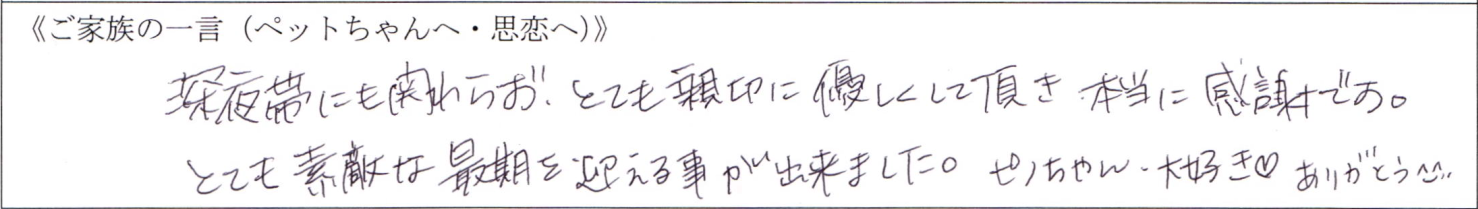 《ご家族の一言（ペットちゃんへ・思恋へ）》
深夜帯にも関わらず、とても親切に優しくして頂き 本当に感謝です。
とても素敵な最期を迎える事が出来ました。ピノちゃん・大好き♡ ありがとう^^